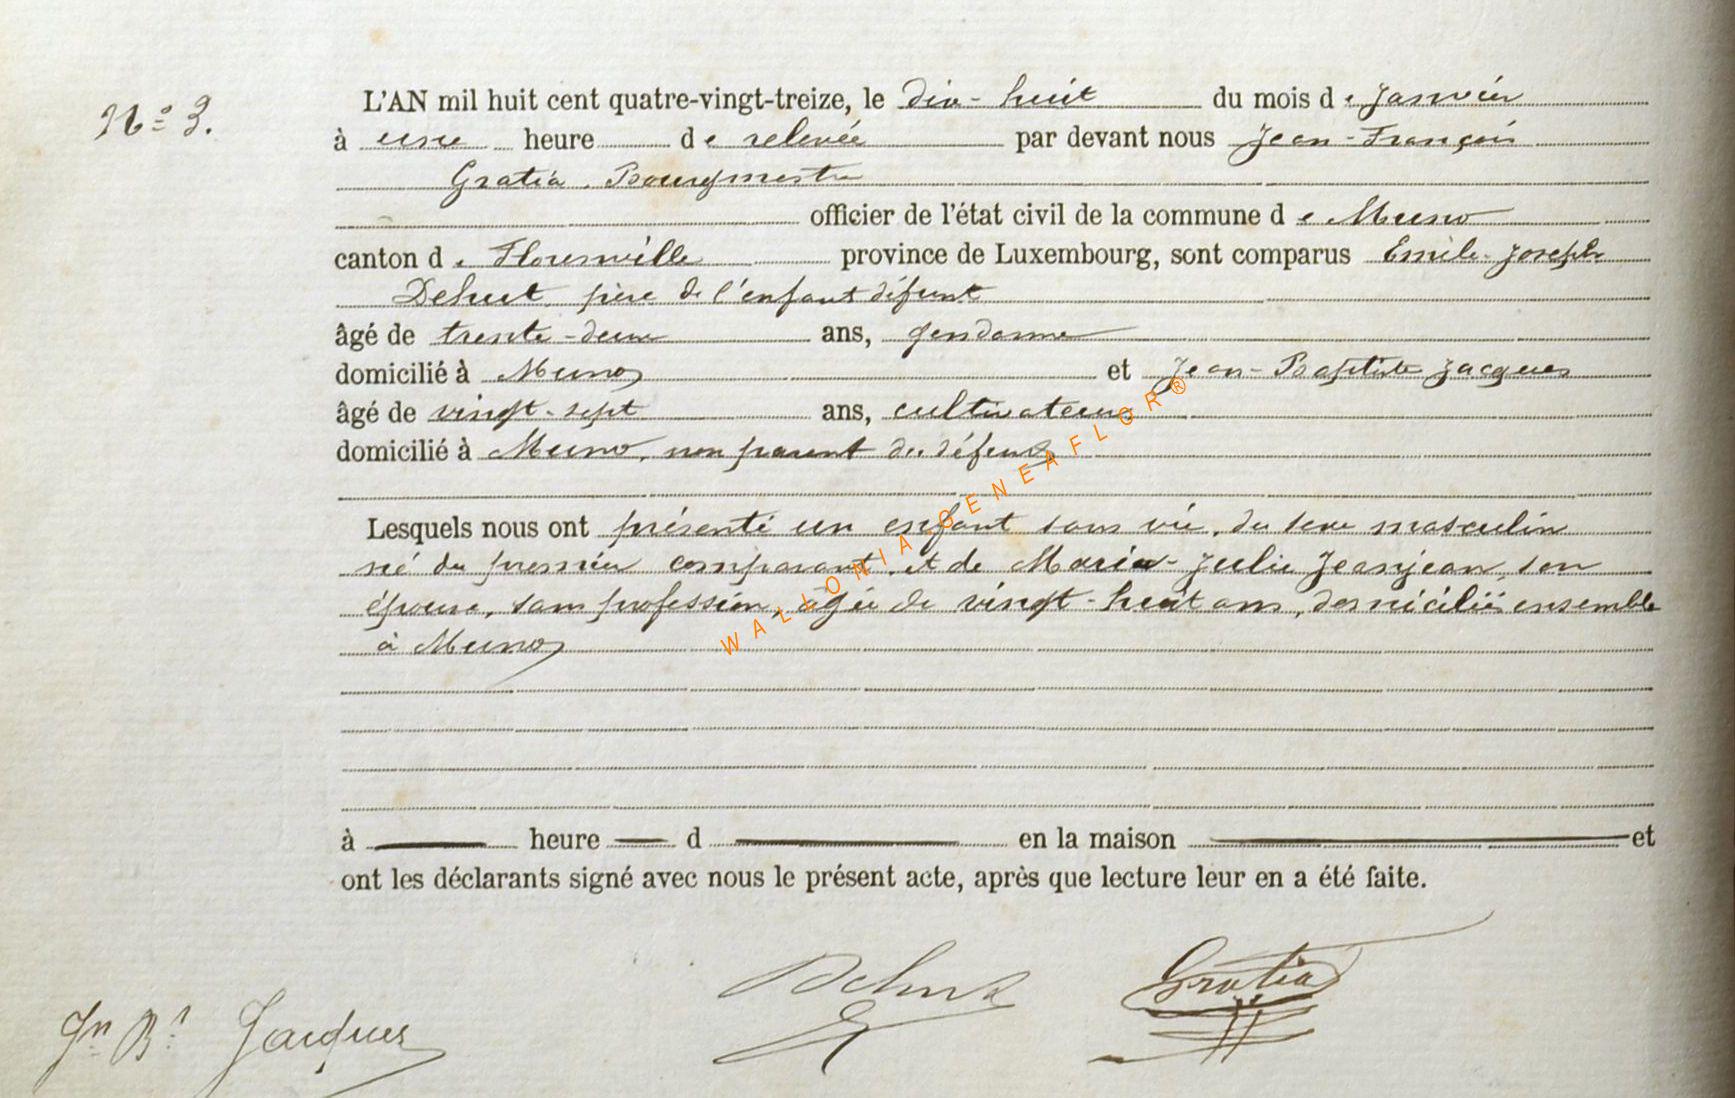 N° 3.
L'AN mil huit cent quatre-vingt-treize, le dix-huit du mois de Janvier
à une heure de relevée par devant nous Jean-François
Gratia, Bourgmestre
officier de l'état civil de la commune de Muno
canton de Florenville province de Luxembourg, sont comparus Emile-Joseph
Dehut, père de l'enfant défunt
âgé de trente-deux ans, gendarme
domicilié à Muno et Jean-Baptiste Jacques
âgé de vingt-sept ans, cultivateur
domicilié à Muno, non parent du défunt
Lesquels nous ont présenté un enfant sans vie, du sexe masculin
né du premier comparant, et de Marie-Julie Jeanjean, son
épouse, sans profession, âgée de vingt-huit ans, domiciliés ensemble
à Muno
à heure d en la maison et
ont les déclarants signé avec nous le présent acte, après que lecture leur en a été faite.
Dehut Gratia
Jn Bt Jacques
WALLONIA GENEAFLOR®